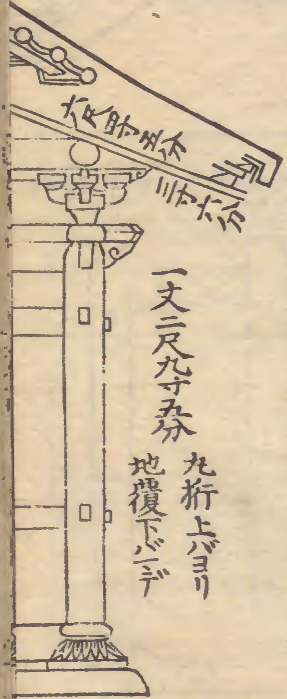 六尺四寸五分
三寸六分
一丈二尺九寸五分
丸桁上バヨリ
地覆下バマデ